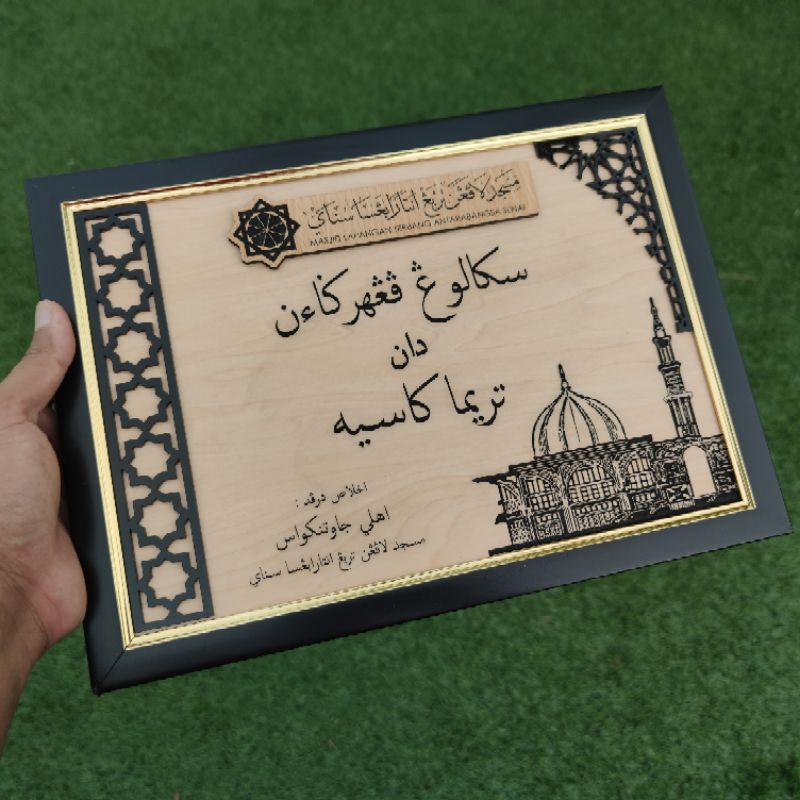 مسجد لاڤڠن تربڠ انتارابڠسا سناي
MASJID LAPANGAN TERBANG ANTARABANGSA SENAI
سكالوڠ ڤڠهرݢاءن
دان
تريما كاسيه
اخلاص درڤد :
اهلي جاوتنكواس
مسجد لاڤڠن تربڠ انتارابڠسا سناي